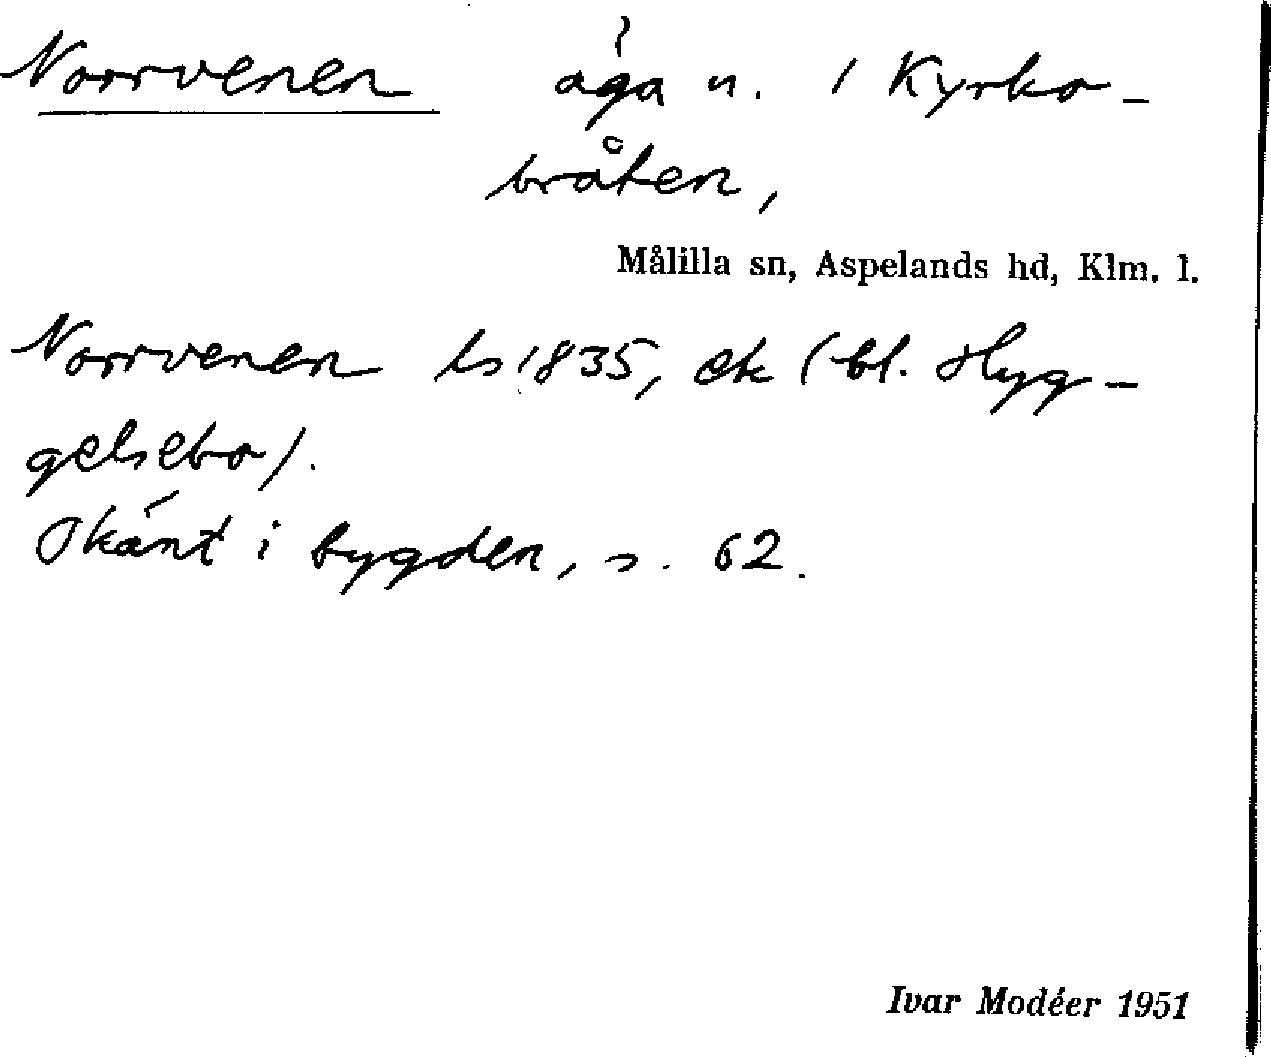 Norrvenen äga n. / Kyrko-
bråten,
Målilla sn, Aspelands hd, Klm. l.
Norrvenen ls 1835, ek (bl. Hyg-
gelsebo).
Okänt i bygden, s. 62.
Ivar Modéer 1951